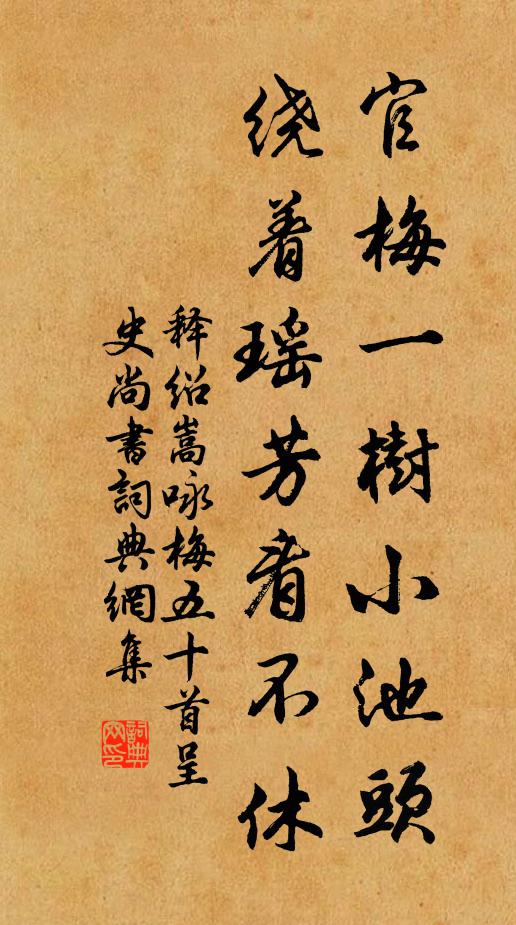 官梅一樹小池頭
绕着瑶芳看不休
释绍嵩咏梅五十首呈
史尚書詞典網集
詞典网印